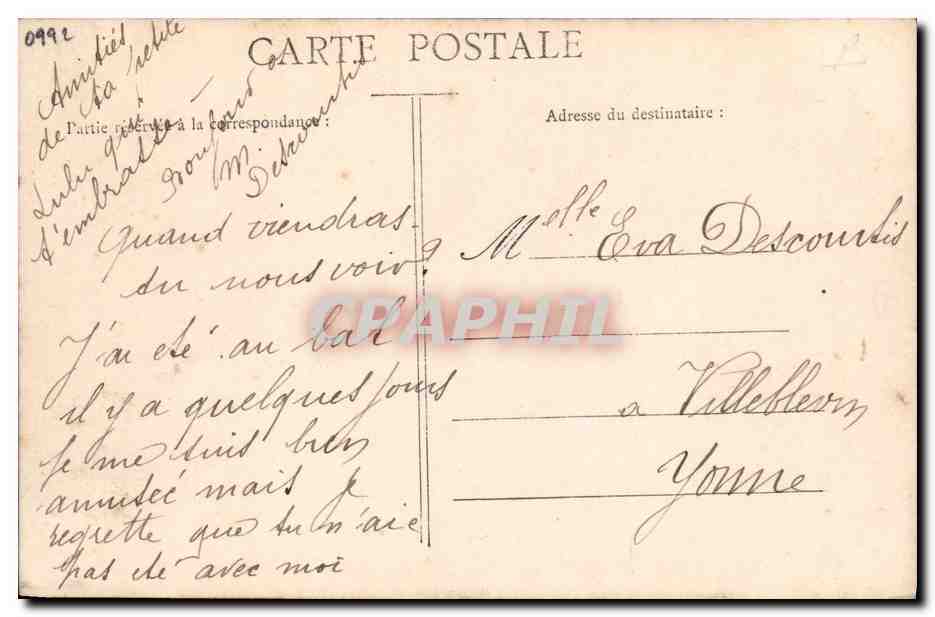 0992
CARTE POSTALE
Partie réservée à la correspondance :
Adresse du destinataire :
Quand viendras-
tu nous voir ?
J'ai été au bal
il y a quelques jours
Je me suis bien
amusée mais je
regrette que tu n'aie
pas été avec moi
Amitiés
de ta petite
Lulu qui
t'embrasse
M.
Descourtis
Melle Eva Descourtis
a Villeblevin
Yonne
CPAPHIL